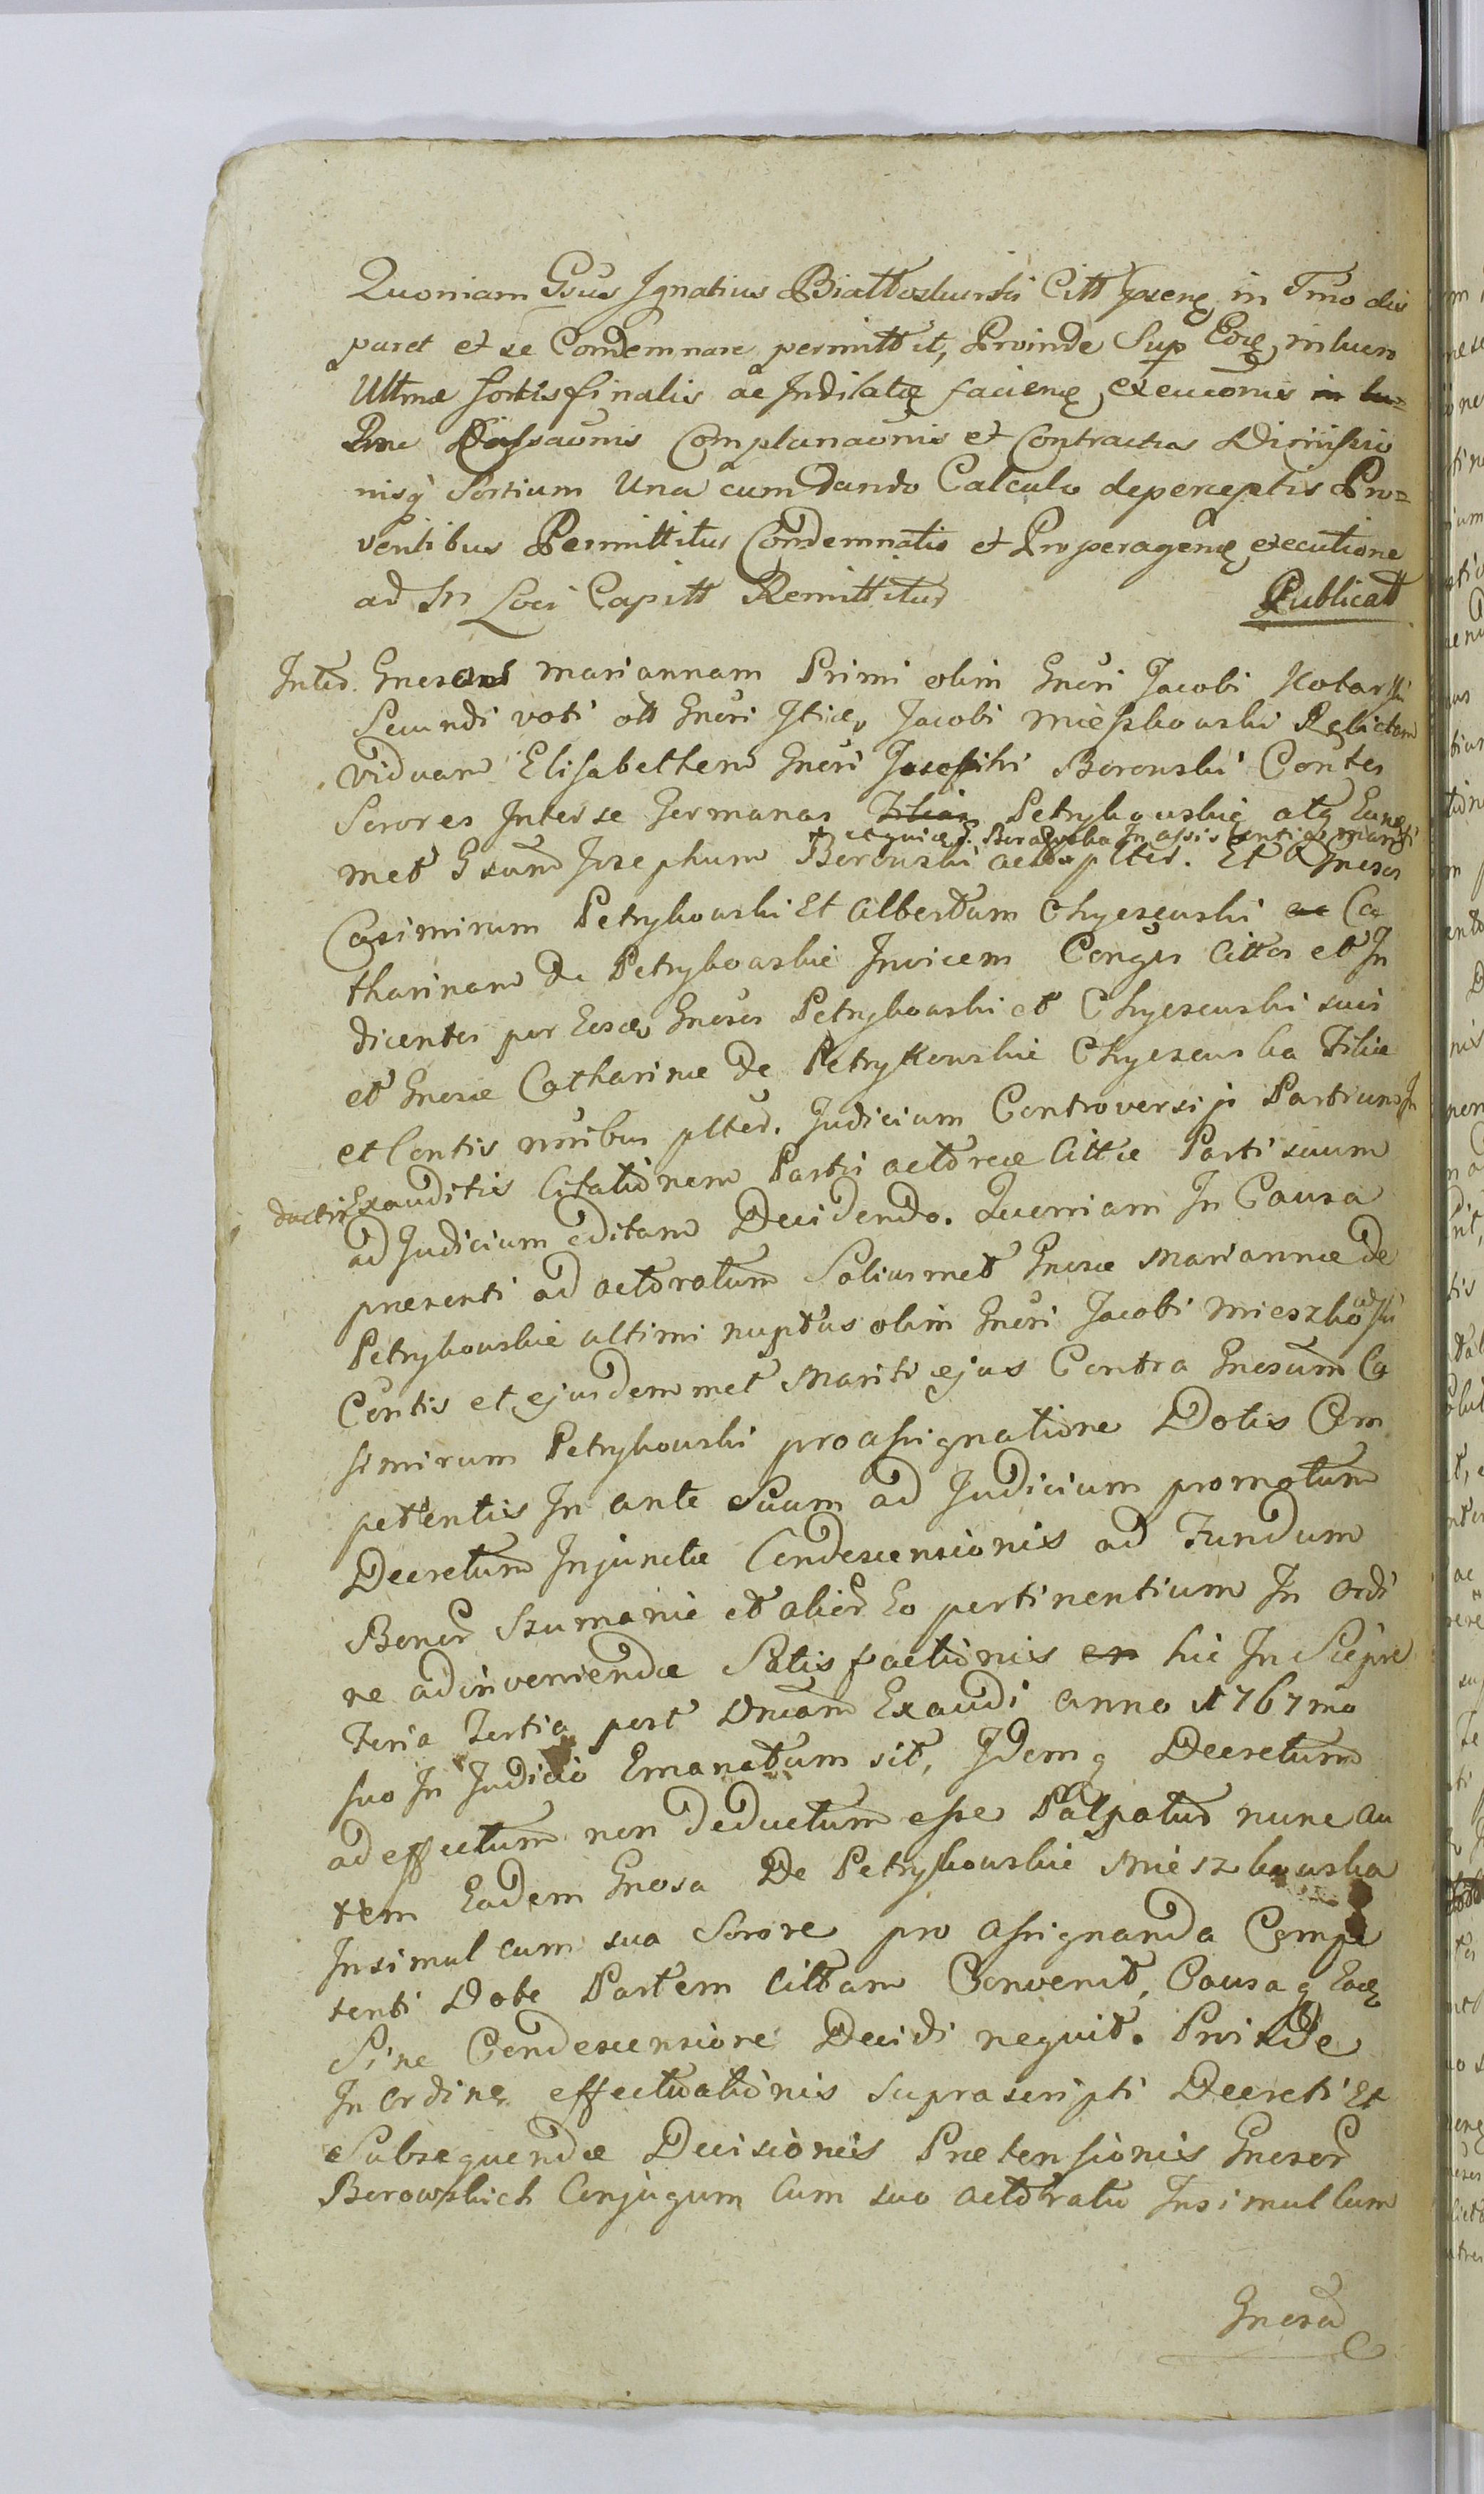 Quoniam Gsus Ignatius Biattoskurski Citt in Tmo
paret et se Condemnare permittit, Proinde Sup in luero
Ultmæ sortis finalis ac Indilatæ faciene execuconis in lu=
Complanaonis et Contractus
nisq Sortium Una cum dando Calculo deperceptis Pro=
ventibus Permittitur Condemnatio et Pro peragene executione
ad Loci Capitt Remittitur Publicatt
Inter. Gnesas Mariannam Primi olim Gnesi Jacobi Kotarski
Secundi voti Gnesi Jacobi Mieszkowski Relictam
Viduam Elisabetham Gnesi Josephi Borowski Contes
Sorores Inter se Germanas Filias Petrykowskie atq
Borowska In assistentia Mariti
met Gsum Josephum Borowski pltes. Et Gnesos
Casimirum Petrykowski Et Albertum Chyczewski ac Ca
tharinam de Petrykowskie Invicem Conges Cittos et In
dicentes per Gnesos Petrykowski et Chyczewski suis
et Gnesæ Catharinæ De Petrykowskie Chyczewska Filiæ
et Contis nõibus plted. Judicium Controversiji Partium In
ductis Exauditis Citationem Partis actoreæ Cittæ Parti suum
ad Judicium editam Decidendo. Quoniam In Causa
presenti ad actoratum Soliusmet Gnesæ Mariannæ de
Petrykowskie ultimi nuptus olim Gnesi Jacobi Mieszkowski
Contis et ejusdemmet Mariti ejus Contra Gnesum Ca
simirum Petrykowski pro assignatione Dotis Com
petentis In ante suum ad Judicium promotum
Decretum Injunctæ Condescensionis ad Fundum
Bonor Szumanie et alior Eo pertinentium In Ordi
ne adinveniendæ Satisfactionis en hic In
Feria Tertia post Dnicam Exaudi anno 1767mo
suo In Judicio Emanatum sit, Idemq Decretum
ad effectum non deductum esse Palpatur nunc au
tem Eadem Gnesa De Petrykowskie Mieszkowska
Insimul cum sua Sorore pro assignanda Compe
tenti Dote Partem Cittam Convenit, Causaq
Sine Condescensione Decidi nequit. Proinde
In ordine effectuationis suprascripti Decreti Et
Subsequendæ Decisionis Prætensionis Gnesor
Borowskich Conjugum Cum suo actoratu Insimul Cum
Gnesa